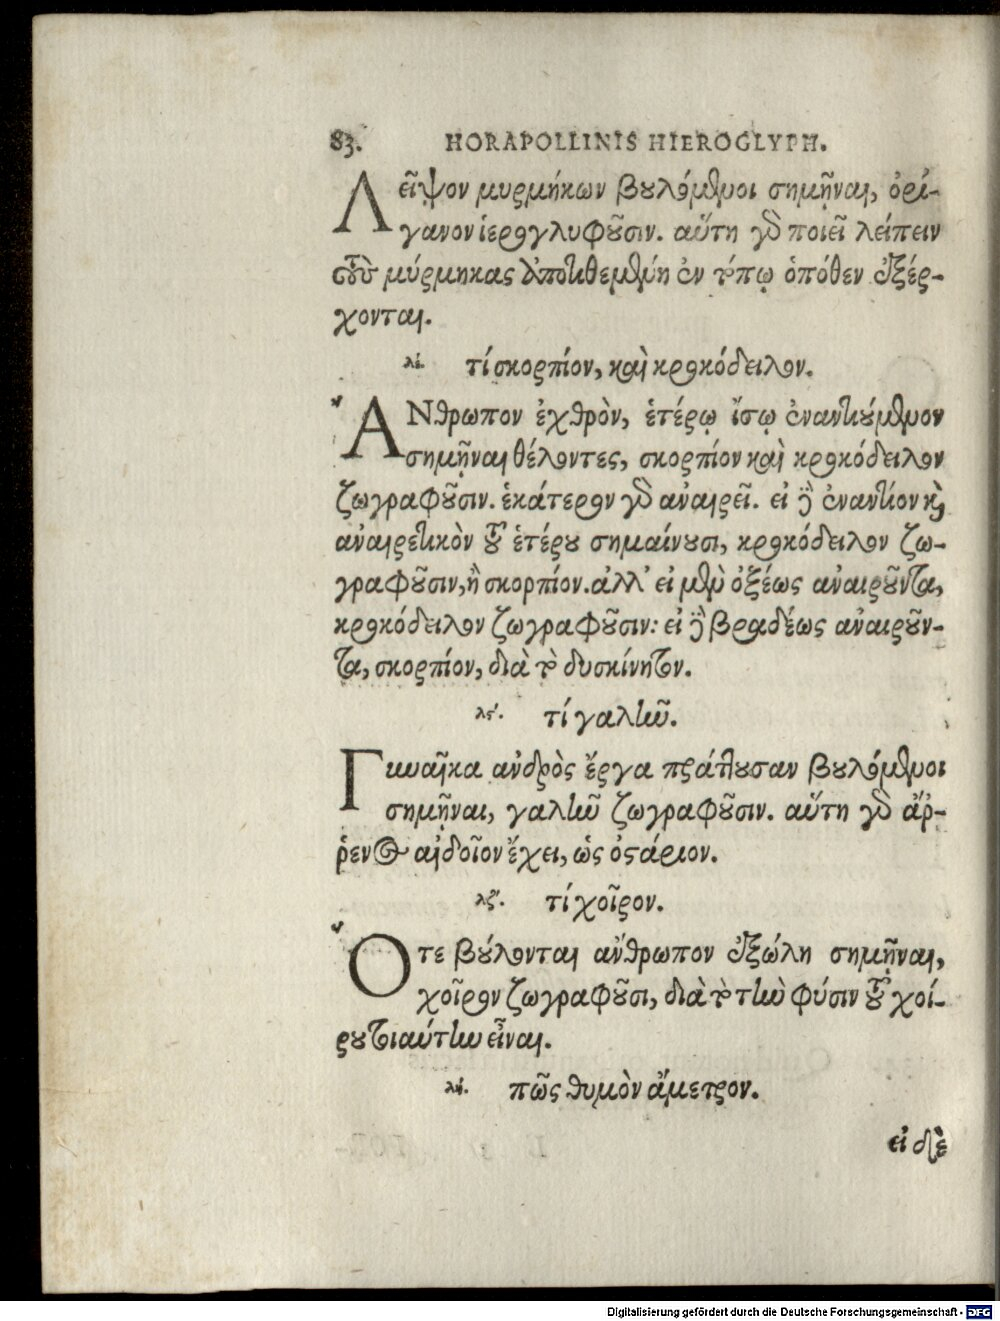 83. HORAPOLLINIS HIEROGLYPH.
Λεῖψον μυρμήκων βουλόμενοι σημῆναι, ὀρί-
γανον ἱερογλυφοῦσιν. αὕτη γὰρ ποιεῖ λείπειν
τοὺς μύρμηκας ἀποτιθεμένη ἐν τόπῳ ὁπόθεν ἐξέρ-
χονται.
λέ. τί σκορπίον, καὶ κροκόδειλον.
ΑΝθρωπον ἐχθρὸν, ἑτέρῳ ἴσῳ ἐναντιούμενον
σημῆναι θέλοντες, σκορπίον καὶ κροκόδειλον
ζωγραφοῦσιν. ἑκάτερον γὰρ ἀναιρεῖ. εἰ δὲ ἐναντίον καὶ
ἀναιρετικὸν τοῦ ἑτέρου σημαίνουσι, κροκόδειλον ζω-
γραφοῦσιν, ἢ σκορπίον. ἀλλ' εἰ μὲν ὀξέως ἀναιροῦντα,
κροκόδειλον ζωγραφοῦσιν: εἰ δὲ βραδέως ἀναιροῦν-
τα, σκορπίον, διὰ τὸ δυσκίνητον.
λς'. τί γαλῆν.
Γυναῖκα ἀνδρὸς ἔργα πράττουσαν βουλόμενοι
σημῆναι, γαλῆν ζωγραφοῦσιν. αὕτη γὰρ ἄρ-
ῥενος αἰδοῖον ἔχει, ὡς ὀστάριον.
λζ'. τί χοῖρον.
Οτε βούλονται ἄνθρωπον ἐξώλη σημῆναι,
χοῖρον ζωγραφοῦσι, διὰ τὸ τὴν φύσιν τοῦ χοί-
ρου τοιαύτην εἶναι.
λή. πῶς θυμὸν ἄμετρον.
εἰ δὲ
Digitalisierung gefördert durch die Deutsche Forschungsgemeinschaft - DFG